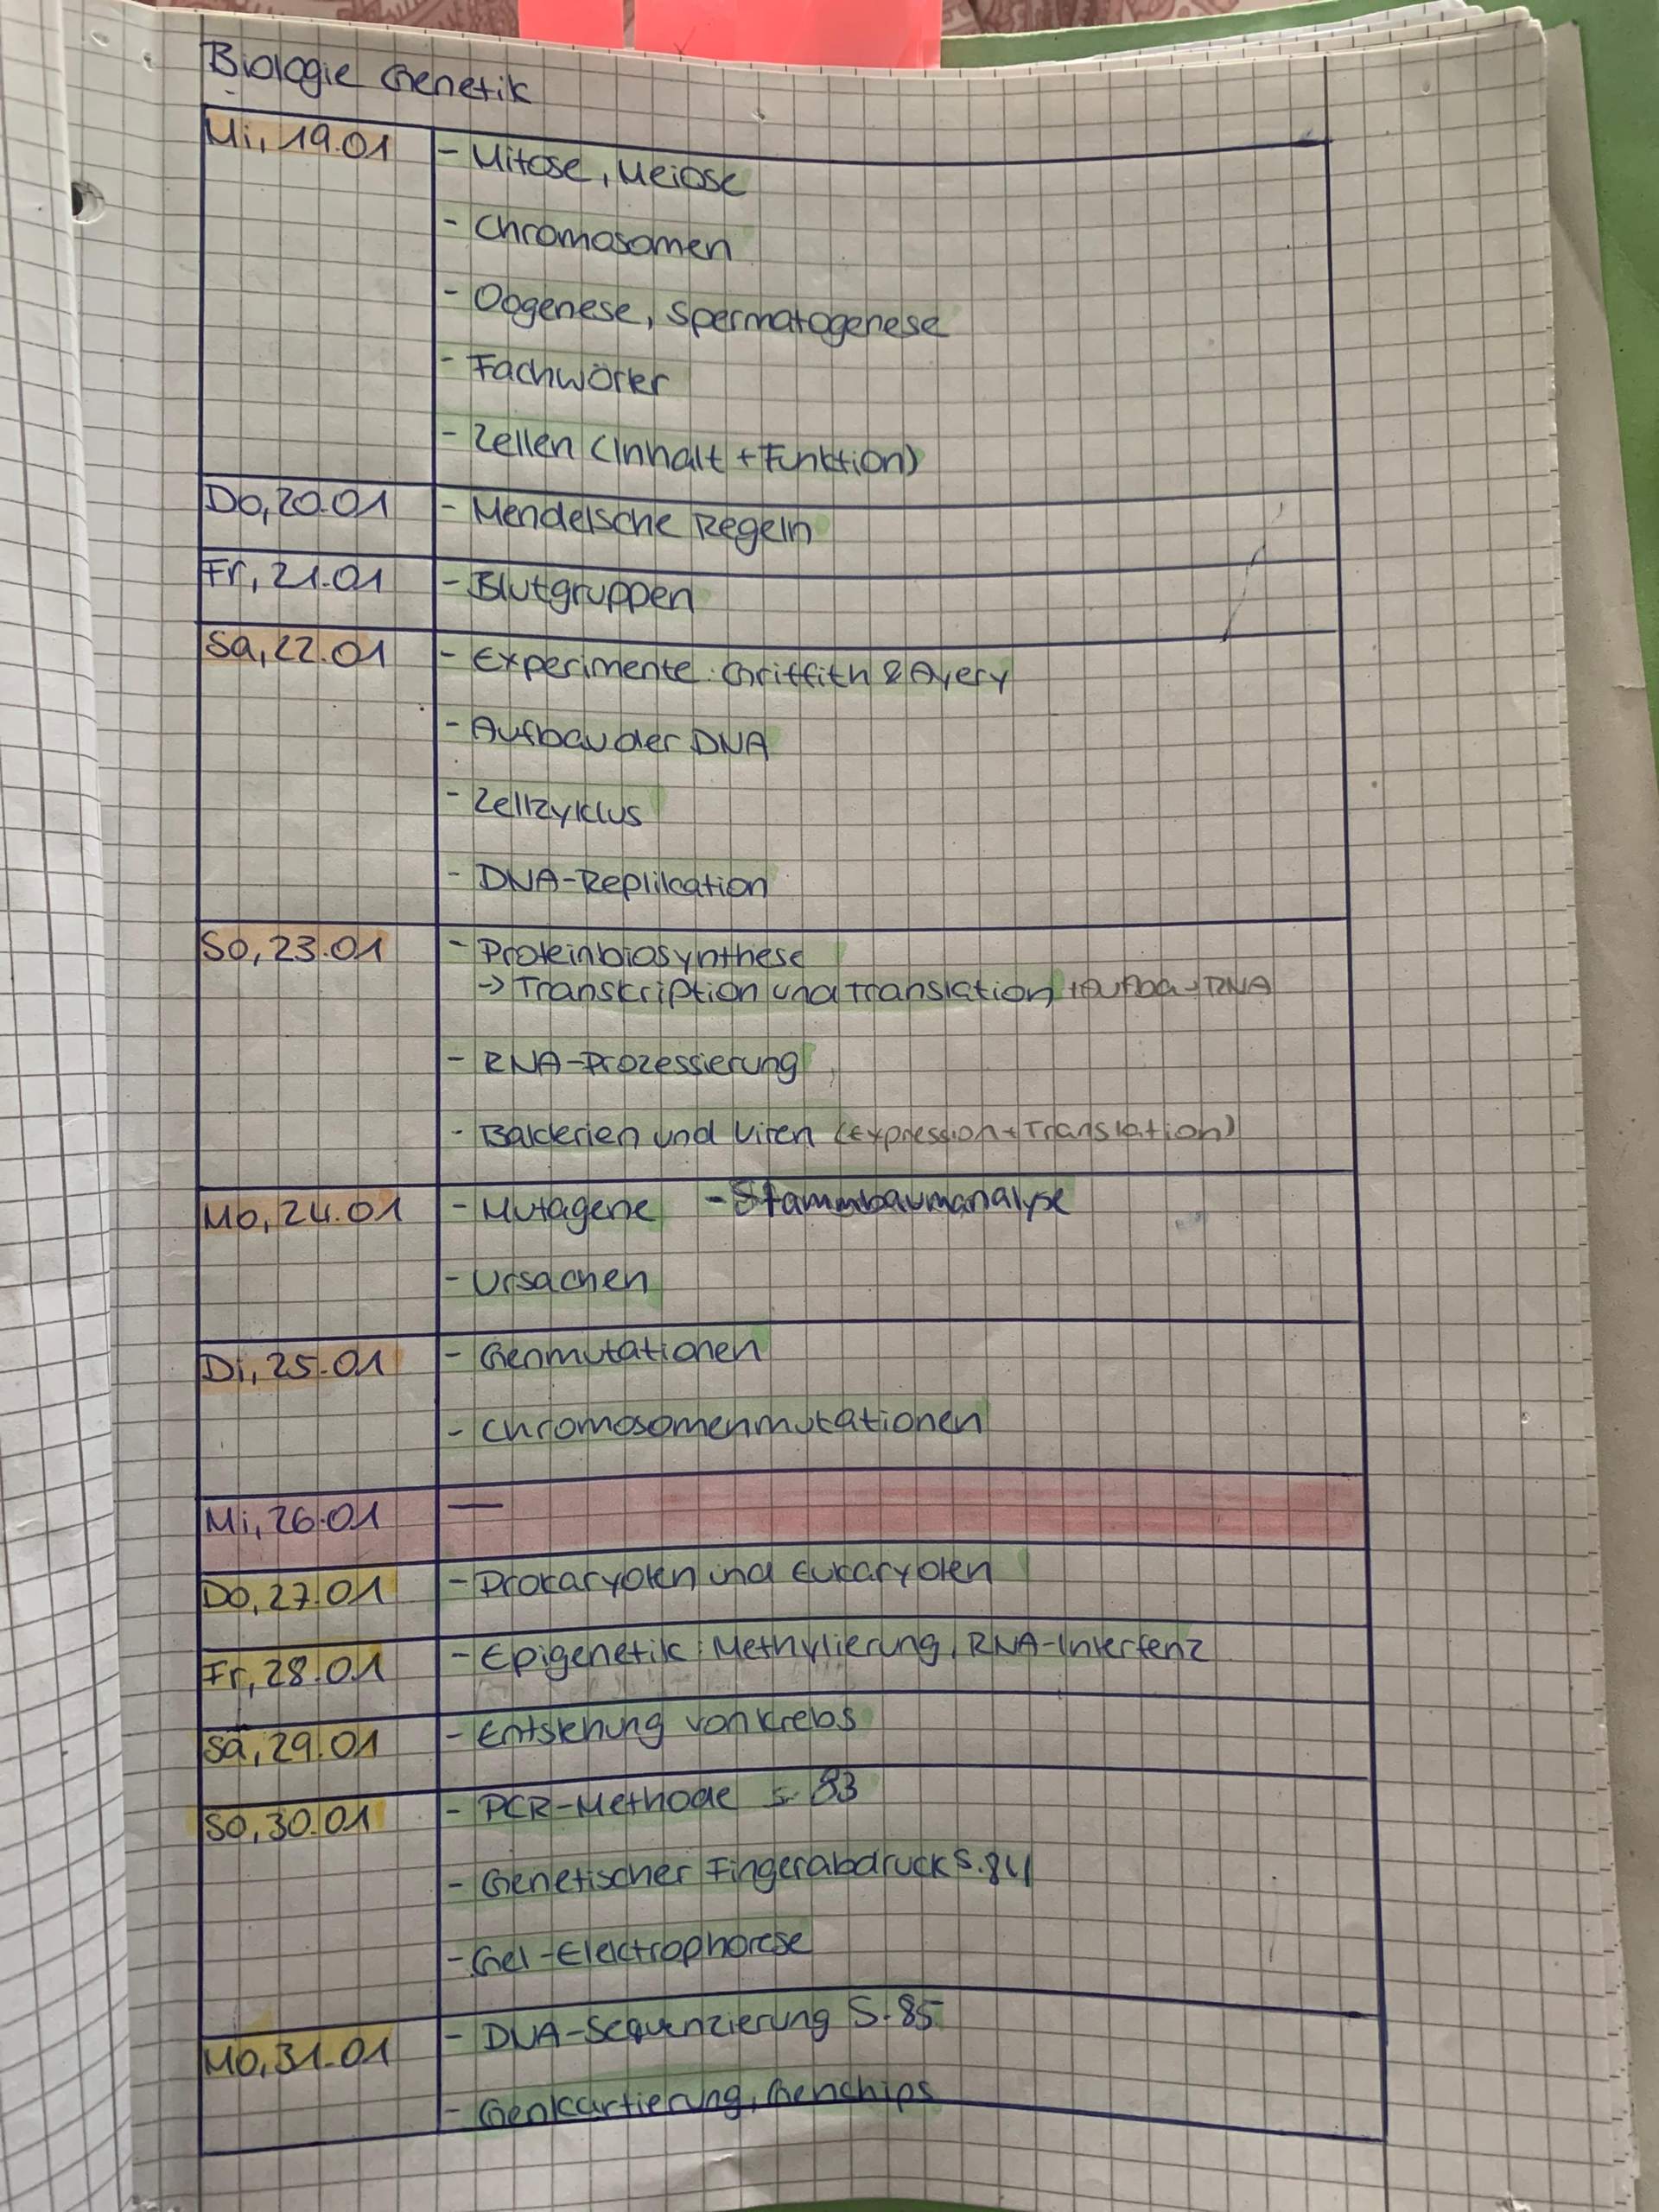 Biologie Genetik
Mi, 19.01
- Mitose, Meiose
- Chromosomen
- Oogenese, Spermatogenese
- Fachwörter
- Zellen (Inhalt + Funktion)
Do, 20.01
- Mendelsche Regeln
Fr, 21.01
- Blutgruppen
Sa, 22.01
- Experimente: Griffith & Avery
- Aufbau der DNA
- Zellzyklus
- DNA-Replikation
So, 23.01
- Proteinbiosynthese
-> Transkription und Translation + Aufbau RNA
- RNA-Prozessierung
- Bakterien und Viren (Expression + Translation)
Mo, 24.01
- Mutagene - Stammbaumanalyse
- Ursachen
Di, 25.01
- Genmutationen
- Chromosomenmutationen
Mi, 26.01
—
Do, 27.01
- Prokaryoten und Eukaryoten
Fr, 28.01
- Epigenetik: Methylierung, RNA-Interfenz
Sa, 29.01
- Entstehung von Krebs
So, 30.01
- PCR-Methode S. 83
- Genetischer Fingerabdruck S. 84
- Gel-Elektrophorese
Mo, 31.01
- DNA-Sequenzierung S. 85
- Genkartierung, Genchips